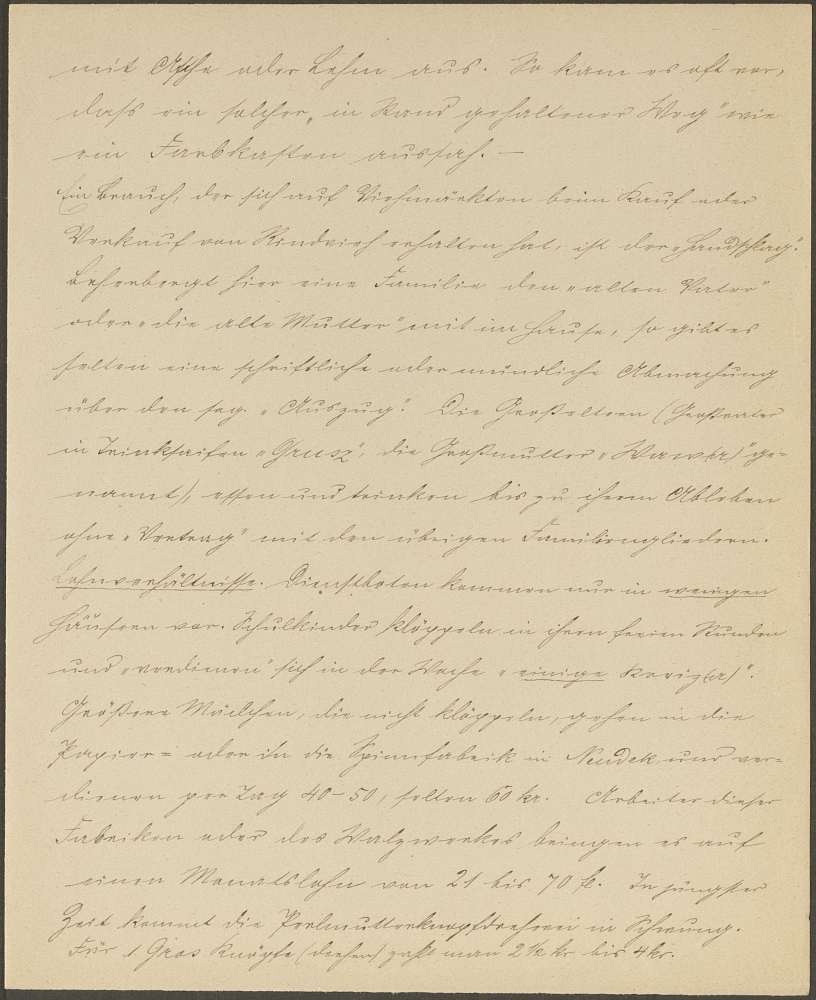 mit Asche oder Lehm aus. So kam es oft vor,
dass ein solcher „in Stand gehaltener Weg" wie
ein Farbkasten aussah. —
Ein Brauch, der sich auf Viehmärkten beim Kauf oder
Verkauf von Rindvieh erhalten hat, ist der „Handschlag".
Beherbergt hier eine Familie den „alten Vater"
oder „die alte Mutter" mit im Hause, so gibt es
selten eine schriftliche oder mündliche Abmachung
über den sog. „Auszug". Die Großeltern (Großvater
in Trinkseifen „Grusz", die Großmutter „Waw(a)" ge-
nannt), essen und trinken bis zu ihrem Ableben
ohne „Vertrag" mit den übrigen Familienmgliedern.
Lohnverhältnisse. Dienstboten kommen nur in wenigen
Häusern vor. Schulkinder klöppeln in ihren freien Stunden
und „verdienen" sich in der Woche „einige Kreiz(a)".
Größere Mädchen, die nicht klöppeln, gehen in die
Papier- oder in die Spinnfabrik in Neudek und ver-
dienen per Tag 40–50, selten 60 kr. Arbeiter dieser
Fabriken oder des Walzwerkes bringen es auf
einen Monatslohn von 21 bis 70 fl. In jüngster
Zeit kommt die Perlmutterknopfdreherei in Schwung.
Für 1 Gros Knöpfe (drehen) zahlt man 2½ kr bis 4 kr.